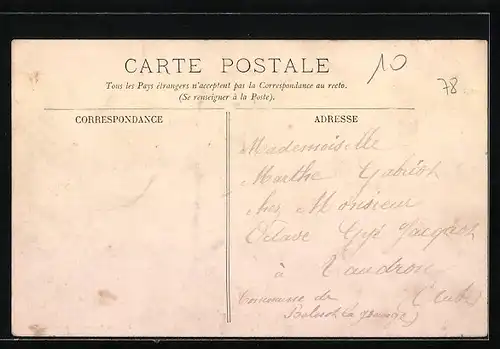 CARTE POSTALE
10
78
Tous les Pays étrangers n'acceptent pas la Correspondance au recto.
(Se renseigner à la Poste).
CORRESPONDANCE
ADRESSE
Mademoiselle
Marthe
chez Monsieur
Octave Gyé Jacquot
à
Commune de (Aube)